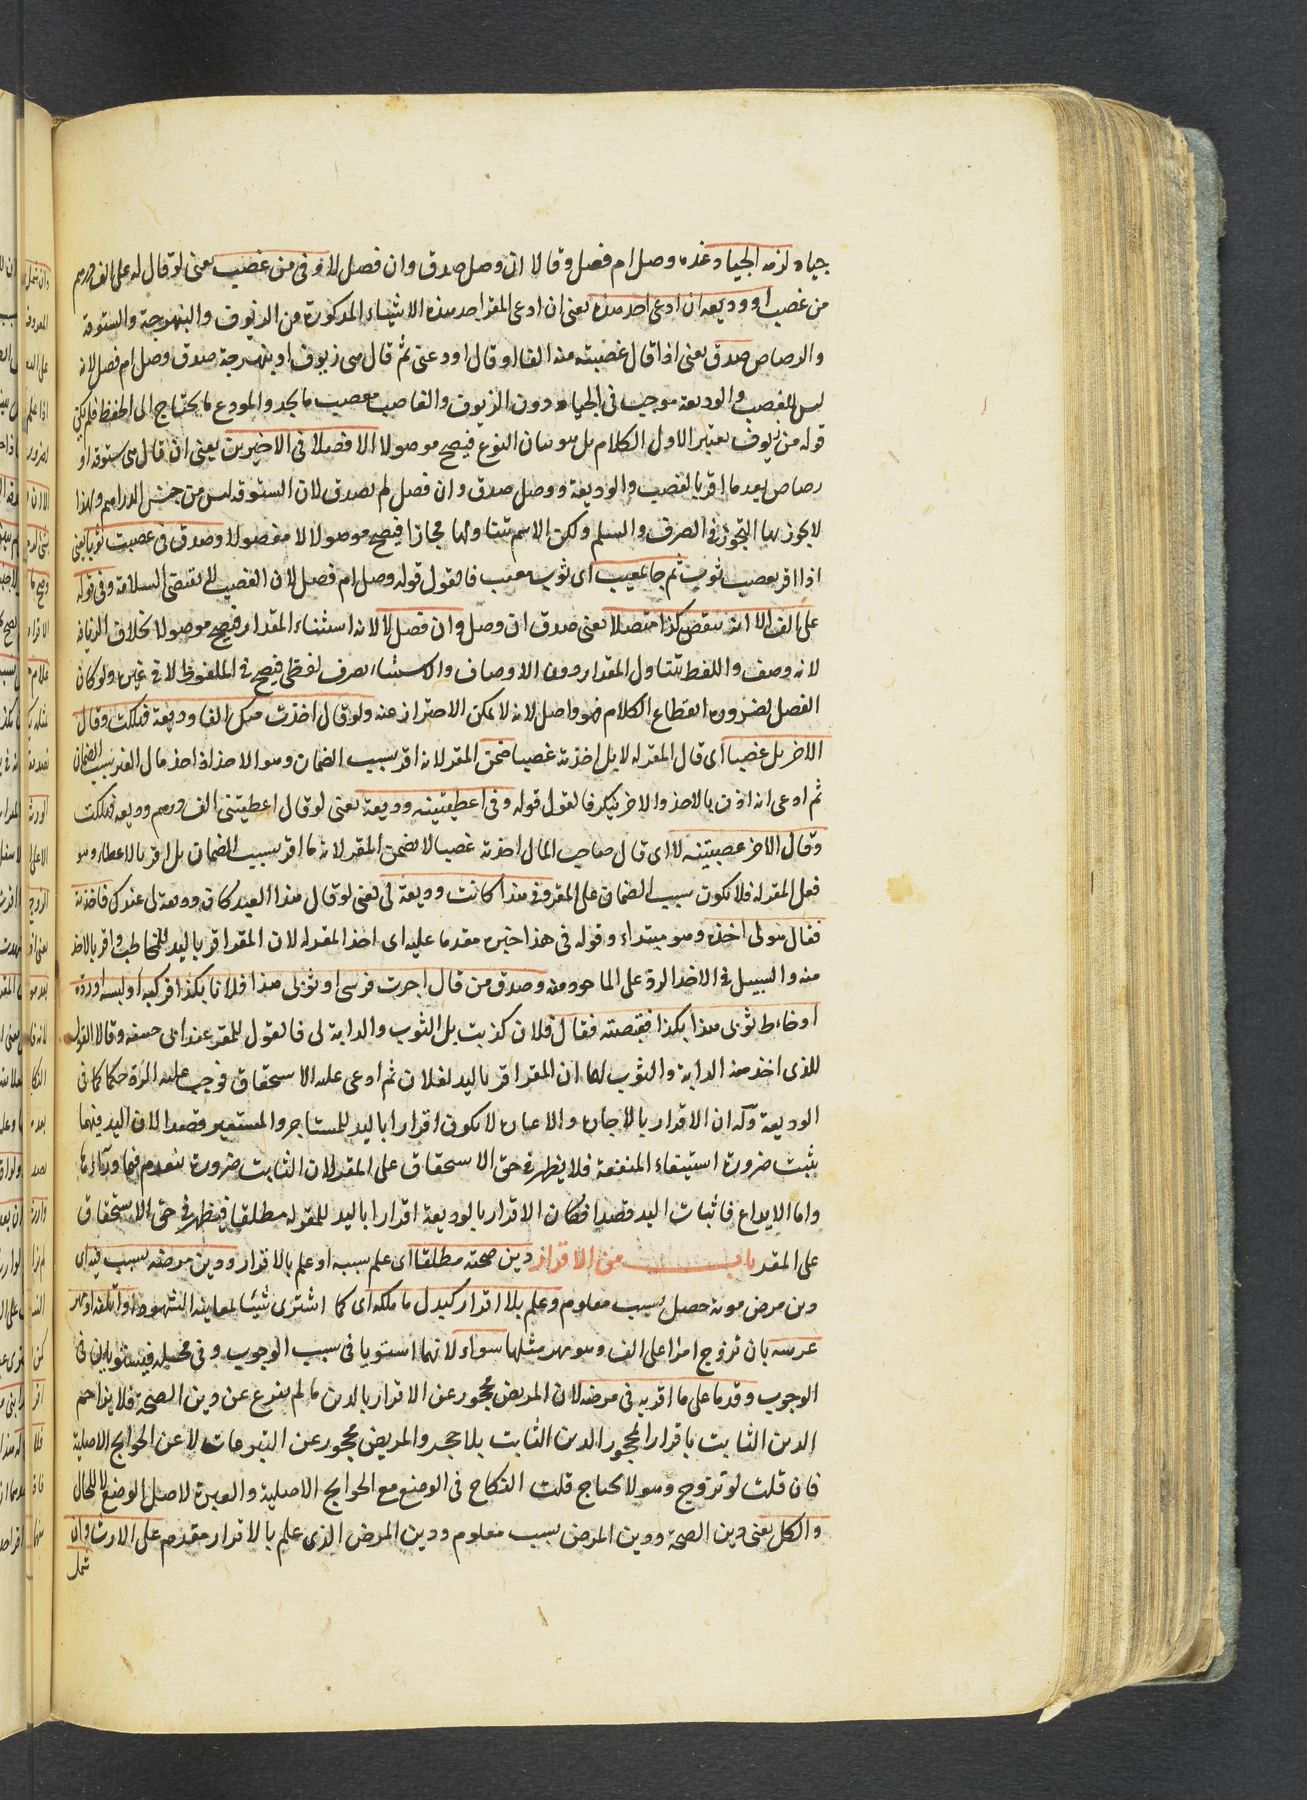 جياد لزمه الجياد عنده وصل ام فصل وقالا ان وصل صدق وان فصل لا وفى من غصب يعنى لو قال له على الف درهم
من غصب او وديعة ان ادعى احد هذه يعنى ان ادعى المقر احد هذه الاشياء المذكورة من الزيوف والنبهرجة والستوقة
والرصاص صدق يعنى اذا قال غصبته منه الفا او قال اودعنى ثم قال هى زيوف او بنهرجة صدق وصل ام فصل لانه
ليس للغصب والوديعة موجب فى الجياد دون الزيوف والغاصب يغصب ما يجد والمودع ما يحتاج الى الحفظ فلم يكن
قوله من زيوف تغيير الاول الكلام بل هو بيان النوع فيصح موصولا الا فصلا فى الاخيرين يعنى ان قال هى ستوقة او
رصاص بعد ما اقر بالغصب والوديعة ووصل صدق وان فصل لم يصدق لان الستوقة ليس من جنس الدراهم ولهذا
لا يجوز بها التجوز فى الصرف والسلم ولكن الاسم تتناولها مجازا فيصح موصولا لا مفصولا وصدق فى غصبت ثوبا يعنى
اذا اقر بغصب ثوب ثم جا بمعيب اى ثوب معيب فالقول قوله وصل ام فصل لان الغصب لا يقتضى السلامة وفى قوله
على الف الا انه ينقص كذا متصلا يعنى صدق ان وصل وان فصل لا لانه استثناء المقدار فيصح موصولا بخلاف الزيافة
لانه وصف واللفظ تتناول المقدار دون الاوصاف والاستثناء تصرف لفظى فيصح فى الملفوظ لا فى غيره ولو كان
الفصل لضرورة انقطاع الكلام فهو واصل لانه لا يمكن الاحتراز عنه ولو قال اخذت منك الفا وديعة فهلكت وقال
الاخر بل غصبا اى قال المقر له لا بل اخذته غصبا ضمن المقر لانه اقر بسبب الضمان وهو الاخذ اذ اخذ مال الغير سبب الضمان
ثم ادعى انه اذن بالاخذ والاخر ينكر فالقول قوله وفى اعطيتنيه وديعة يعنى لو قال اعطيتنى الف درهم وديعة فهلكت
وقال الاخر غصبتنيه لا اى قال صاحب المال اخذته غصبا لا يضمن المقر لانه ما اقر بسبب الضمان بل اقر بالاعطاء وهو
فعل المقر له فلا تكون سبب الضمان على المقر وفى هذا كانت وديعة لى يعنى لو قال هذا العبد كان وديعة لى عندك فاخذته
فقال هو لى اخذه وهو مبتداء وقوله فى هذا خبره مقدما عليه اى اخذ المقر له لان المقر اقر باليد للمخاطب واقر بالاخذ
منه والسبيل فى الاخذ الرد على الماخوذ منه وصدق من قال اجرت فرسى او ثوبى هذا فلانا بكذا فركبه او لبسه او رده
او خاط ثوبى هذا بكذا فقبضته فقال فلان كذبت بل الثوب والدابة لى فالقول للمقر عند ابى حنيفة وقالا القول
للذى اخذ منه الدابة والثوب لهما ان المقر اقر باليد لفلان ثم ادعى عليه الاستحقاق فوجب عليه الرد حكما كما فى
الوديعة وله ان الاقرار بالاجارة والاعارة لا يكون اقرارا باليد للمستاجر والمستعير قصدا لان اليد فيهما
يثبت ضرورة استيفاء المنفعة فلا يظهر فى حق الاستحقاق على المقر لان الثابت ضرورة ينعدم فيما وراءها
واما الايداع فاثبات اليد قصدا فكان الاقرار بالوديعة اقرارا باليد للمقر له مطلقا فيظهر فى حق الاستحقاق
على المقر باب من الاقرار دين صحته مطلقا اى علم سببه او علم بالاقرار ودين مرضه بسبب فيه اى
دين مرض موته حصل بسبب معلوم وعلم بلا اقرار كبدل ما ملكه اى كما اشترى شيئا بمعاينة الشهود او اتلفه او مهر
عرسه بان تزوج امراة على الف وهو مهر مثلها سواء لانهما استويا فى سبب الوجوب وفى محله فيستويان فى
الوجوب وقدما على ما اقر به فى مرضه لان المريض محجور عن الاقرار بالدين ما لم يفرغ عن دين الصحة فلا يزاحم
الدين الثابت باقرار المحجور الدين الثابت بلا حجر والمريض محجور عن التبرعات لا عن الحوايج الاصلية
فان قلت لو تزوج وهو لا يحتاج قلت النكاح فى الوضع مع الحوايج الاصلية والعبرة لاصل الوضع لا للحال
والكل يعنى دين الصحة ودين المرض بسبب معلوم ودين المرض الذى علم بالاقرار مقدم على الارث وان
شمل